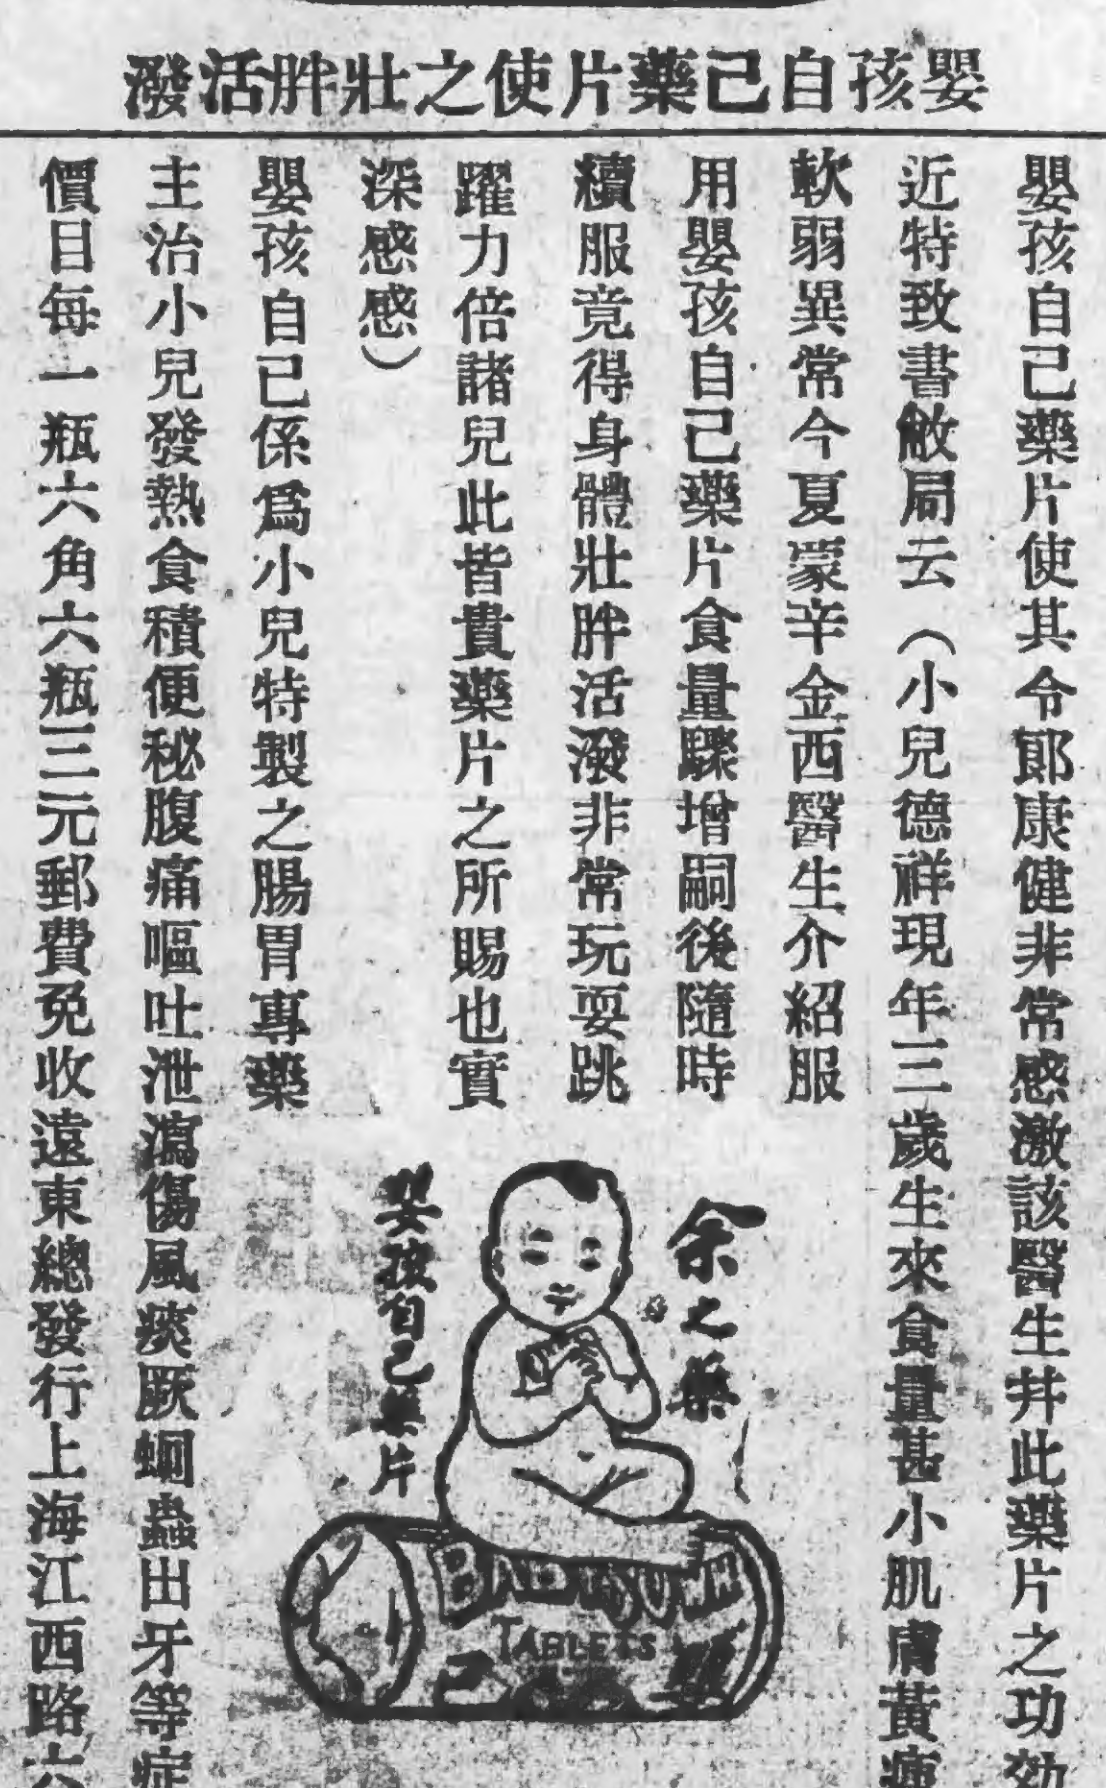 嬰孩自己藥片使之壯胖活潑
嬰孩自己藥片使其令郎康健非常感激該醫生幷此藥片之功効
近特致書敝局云（小兒德祥現年三歲生來食量甚小肌膚黃瘦
軟弱異常今夏蒙辛金西醫生介紹服
用嬰孩自己藥片食量驟增嗣後隨時
續服竟得身體壯胖活潑非常玩耍跳
躍力倍諸兒此皆貴藥片之所賜也實
深感感）
嬰孩自己係爲小兒特製之腸胃專藥
主治小兒發熱食積便秘腹痛嘔吐泄瀉傷風痰厥蛔蟲出牙等症
價目每一瓶六角六瓶三元郵費免收遠東總發行上海江西路六
余之藥
嬰孩自己藥片
BABY'S OWN
TABLETS
己 藥